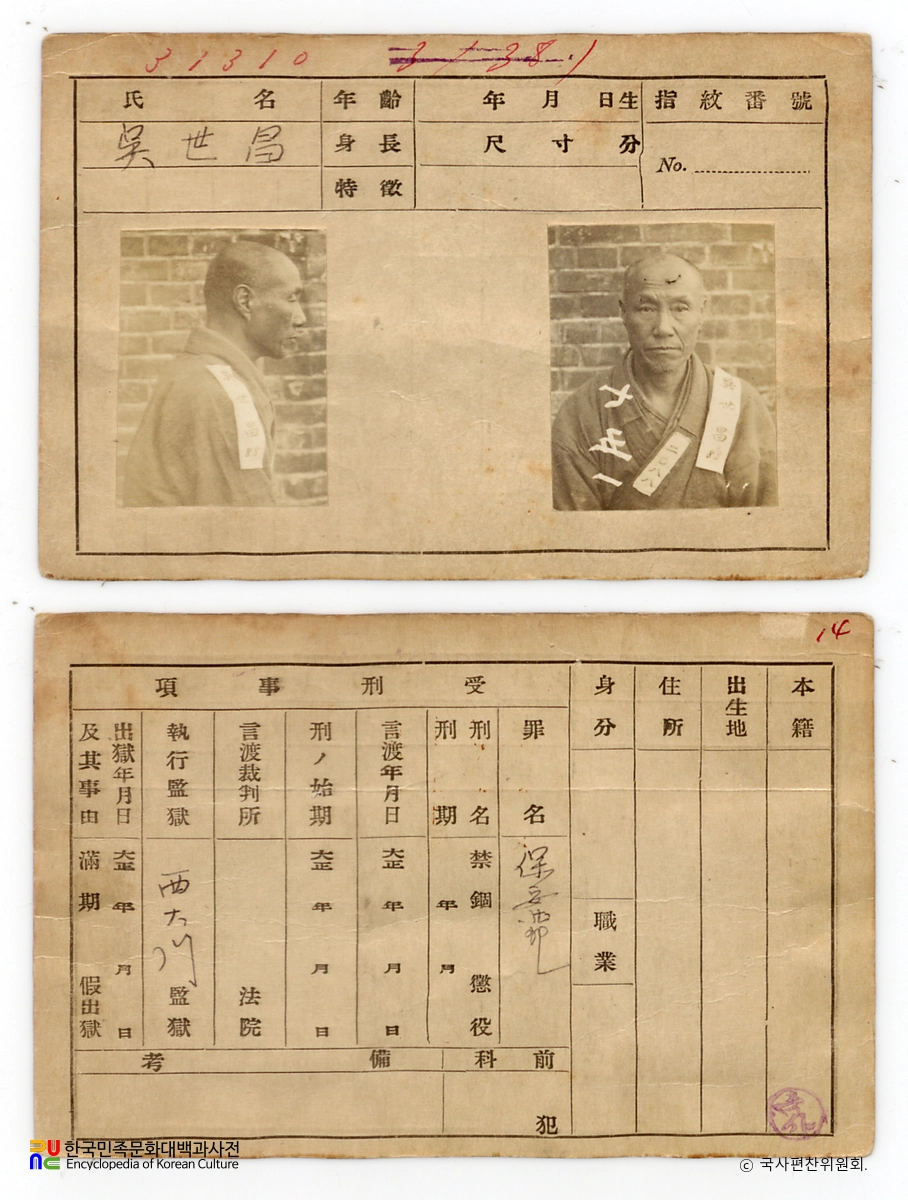 31310
氏名 年齡 年月日生 指紋番號
吳世昌 身長 尺寸分
No.
特徵
吳世昌
二〇八八
14
本籍
出生地
住所
身分
職業
受刑事項
罪名 保安法
刑名 禁錮 懲役
刑期 年月
言渡年月日 大正 年月日
刑ノ始期 大正 年月日
言渡裁判所 法院
執行監獄 西大門 監獄
出獄年月日 大正 年月日
及其事由 滿期 假出獄
前科 犯
備考
한국민족문화대백과사전
Encyclopedia of Korean Culture
© 국사편찬위원회.